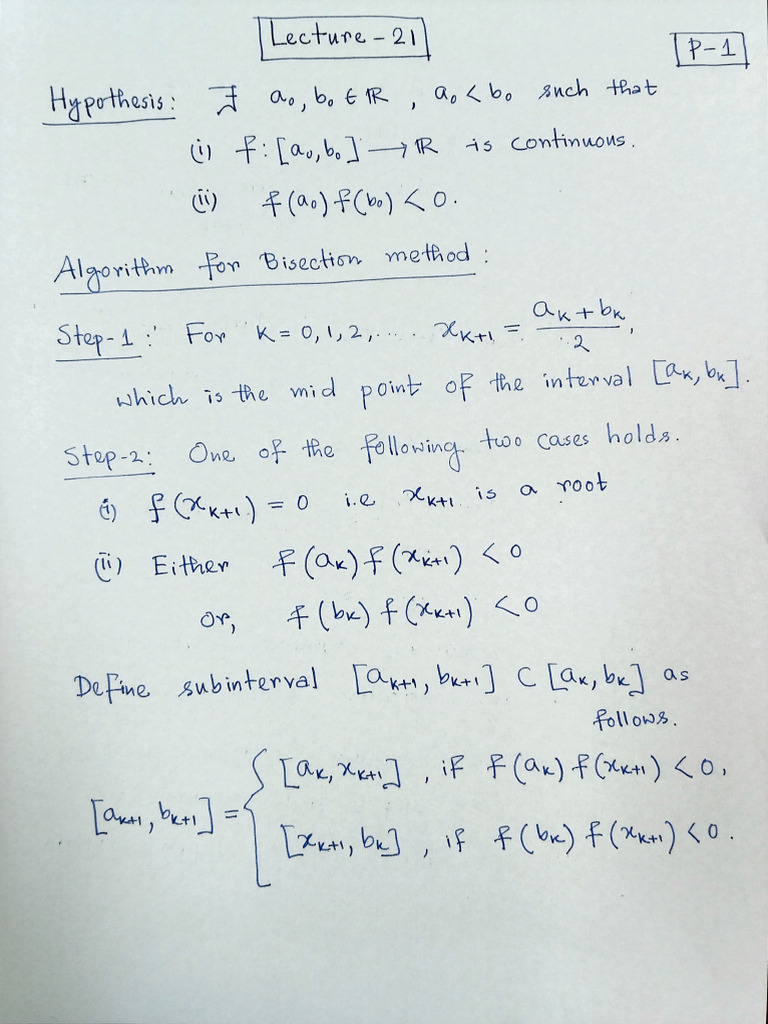 Lecture - 21
P-1
Hypothesis: ∃ a₀, b₀ ∈ ℝ, a₀ < b₀ such that
(i) f: [a₀, b₀] → ℝ is continuous.
(ii) f(a₀) f(b₀) < 0.
Algorithm for Bisection method:
Step-1: For k = 0, 1, 2, .... xₖ₊₁ = (aₖ + bₖ)/2,
which is the mid point of the interval [aₖ, bₖ].
Step-2: One of the following two cases holds.
(i) f(xₖ₊₁) = 0 i.e xₖ₊₁ is a root
(ii) Either f(aₖ) f(xₖ₊₁) < 0
or, f(bₖ) f(xₖ₊₁) < 0
Define subinterval [aₖ₊₁, bₖ₊₁] ⊂ [aₖ, bₖ] as
follows.
[aₖ₊₁, bₖ₊₁] = { [aₖ, xₖ₊₁], if f(aₖ) f(xₖ₊₁) < 0,
[xₖ₊₁, bₖ], if f(bₖ) f(xₖ₊₁) < 0.